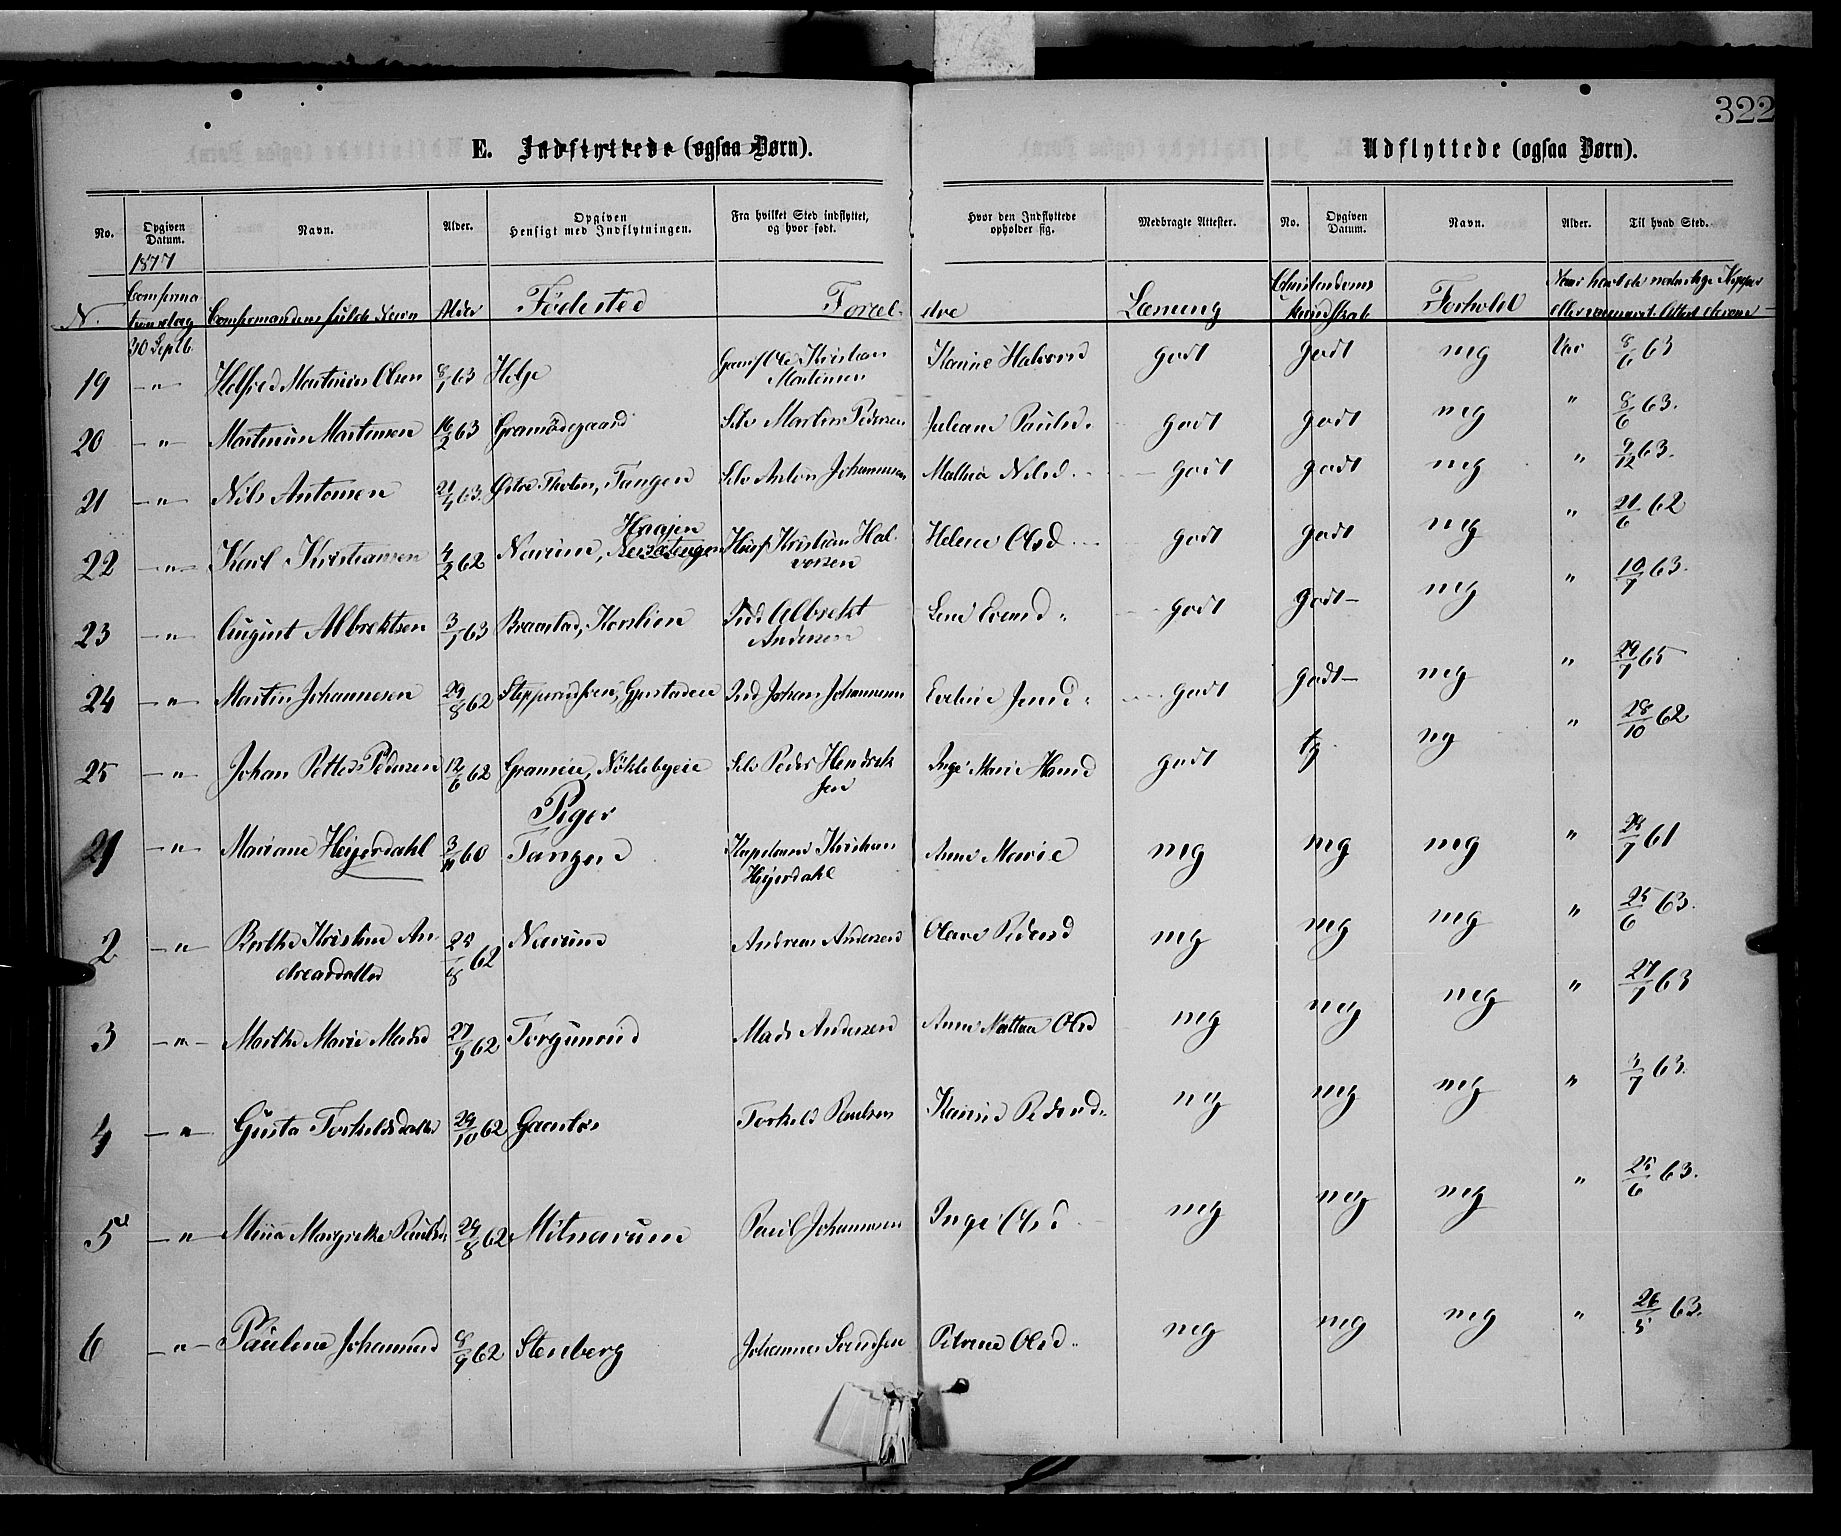 322
E. Indflyttede (ogsaa Børn).
Udflyttede (ogsaa Børn).
No. Opgiven Datum. Navn. Alder. Opgiven Hensigt med Indflytningen. Fra hvilket Sted indflyttet, og hvor født. Hvor den Indflyttede opholder sig. Medbragte Attester. No. Opgiven Datum. Navn. Alder. Til hvad Sted.
1877
N. Confirmationsdag Confirmandens fulde Navn Alder Fødested Forældre Læsning Christendoms Kundskab Forhold
30 Septb.
19 –"– Helfred Martinius Olsen 8/1 63 Helge Ole Kristian Mortensen Karine Halvorsd godt godt mg Vac 8/6 63
20 –"– Martinius Martinsen 16/2 63 Gramødegaard Selv Martin Pedersen Juliane Paulsd. godt godt mg " 8/6 63.
21 –"– Nils Antonsen 21/4 63 Østre Thoten, Tangen Selv Anton Johannesen Mathia Nilsd. godt godt mg " 9/12 63.
22 –"– Karl Kristiansen 4/2 62 Narum, Haajen Kristian Halvorsen Helene Olsd godt godt mg " 21/6 62
23 –"– August Albrektsen 3/1 63 Braastad, Korslien Ind Albrekt Andersen Lene Evensd. godt godt mg " 10/7 63.
24 –"– Martin Johannesen 29/8 62 Ind Johan Johannesen Eveline Jensd. godt godt mg " 29/7 65
25 –"– Johan Petter Pedersen 12/6 62 Grameie, Nøklebyeie Selv Peder Hendriksen Inge Marie Hansd godt tg mg " 28/10 62
Piger
1 –"– Mariane Heyerdahl 3/11 60 Tangen Kristian Heyerdahl Anne Marie mg mg mg " 28/7 61
2 –"– Berthe Kristine Andreasdatter 25/8 62 Narum Andreas Andersen Olava Pedersd mg mg mg " 25/6 63.
3 –"– Marthe Marie Madsd 27/9 62 Torgunrud Mads Andersen Anne Mathea Olsd mg mg mg " 27/7 63
4 –"– Gusta Torkeldsdatter 29/10 62 Gaarder Torkeld Paulsen Karine Pedersd. mg mg mg " 5/7 63.
5 –"– Mina Margrethe Paulsd. 24/8 62 Mitnarum Paul Johannesen Inge Olsd mg mg mg " 25/6 63.
6 –"– Pauline Johannesd 8/9 62 Stenberg Johannes Svendsen Petrine Olsd. mg mg mg " 26/5 63.